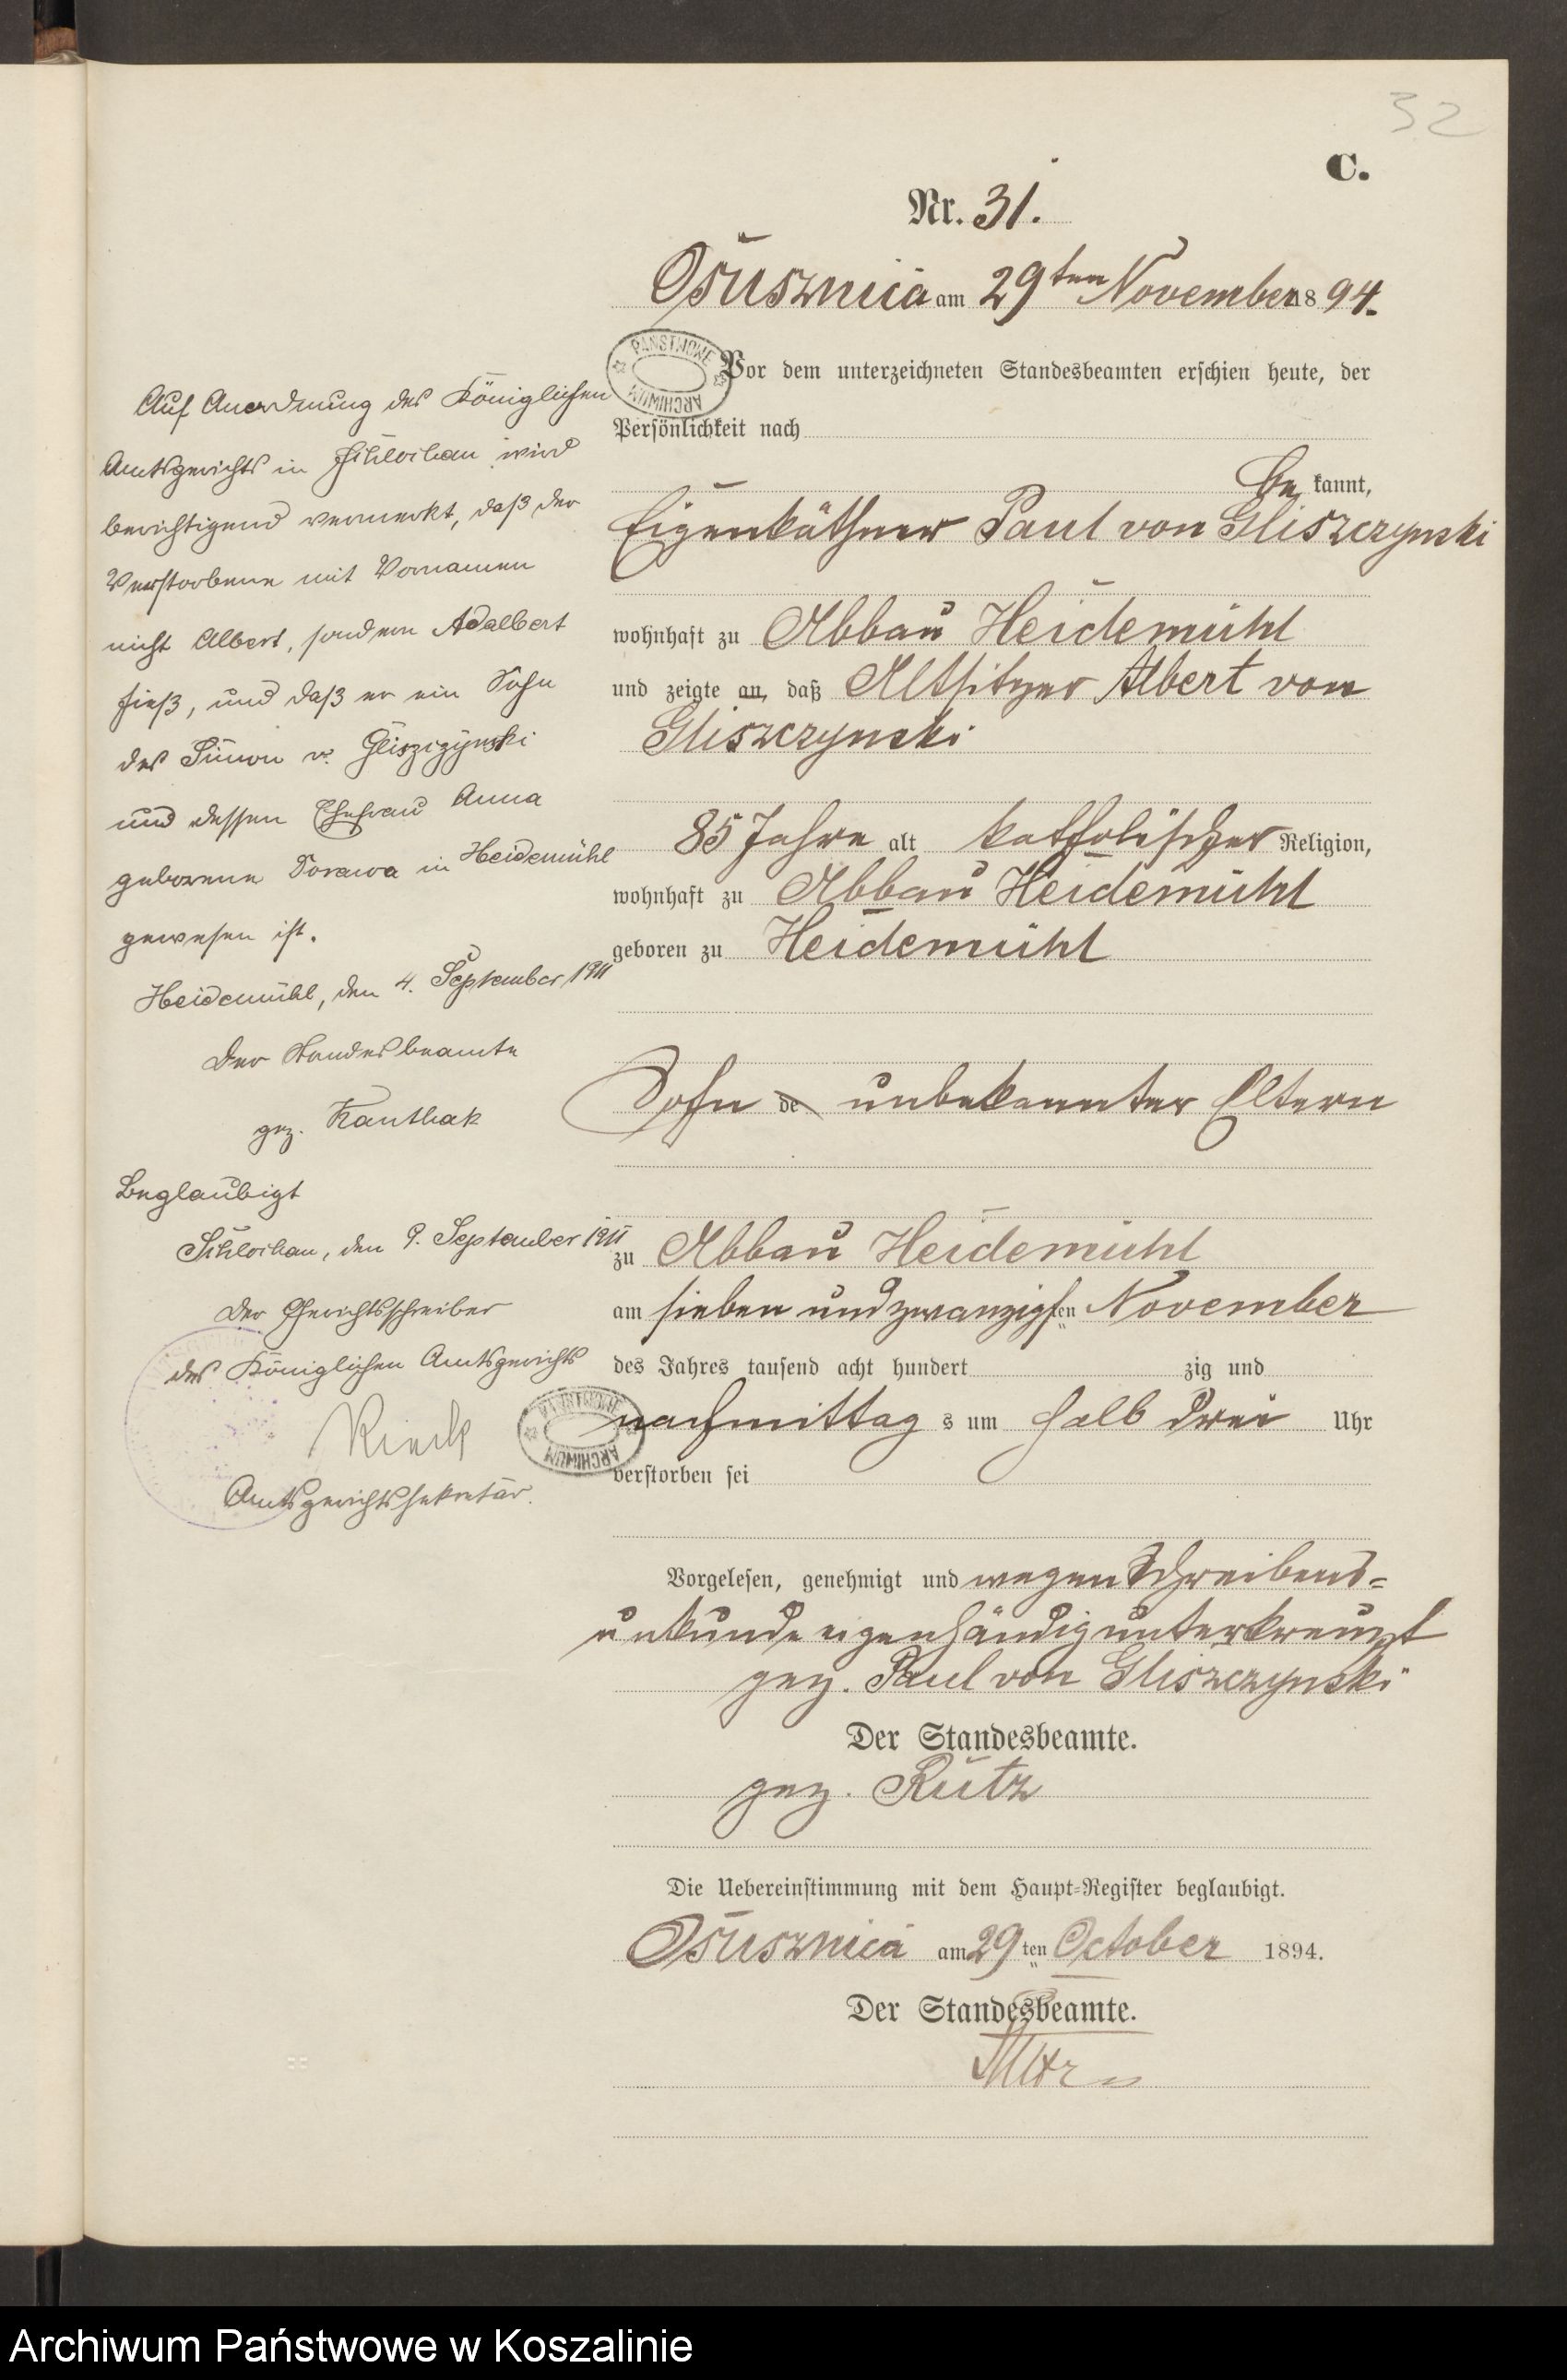 32
C.
Nr. 31.
Ossusznica am 29ten November 1894.
PAŃSTWOWE ARCHIWUM
Vor dem unterzeichneten Standesbeamten erschien heute, der
Persönlichkeit nach
be kannt,
Eigenkäthner Paul von Gliszczynski
wohnhaft zu Abbau Heidemühl
und zeigte an, daß Altsitzer Albert von
Gliszczynski
85 Jahre alt katholischer Religion,
wohnhaft zu Abbau Heidemühl
geboren zu Heidemühl
Sohn de unbekannter Eltern
zu Abbau Heidemühl
am sieben und zwanzigsten November
des Jahres tausend acht hundert zig und
nachmittag s um halb drei Uhr
verstorben sei
Vorgelesen, genehmigt und wegen Schreibens-
unkunde eigenhändig unterkreuzt
gez. Paul von Gliszczynski
Der Standesbeamte.
gez. Rutz
Die Uebereinstimmung mit dem Haupt-Register beglaubigt.
Ossusznica am 29ten October 1894.
Der Standesbeamte.
Auf Anordnung des Königlichen
Amtsgerichts in Schlochau wird
berichtigend vermerkt, daß der
Verstorbene mit Vornamen
nicht Albert, sondern Adalbert
hieß, und daß er ein Sohn
des Simon v. Gliszczynski
und dessen Ehefrau Anna
geborene in Heidemühl
gewesen ist.
Heidemühl, den 4. September 1911
Der Standesbeamte
gez. Kanthak
Beglaubigt
Schlochau, den 9. September 1911
Der Gerichtsschreiber
des Königlichen Amtsgerichts
PAŃSTWOWE ARCHIWUM
Amtsgerichtssekretär.
Archiwum Państwowe w Koszalinie